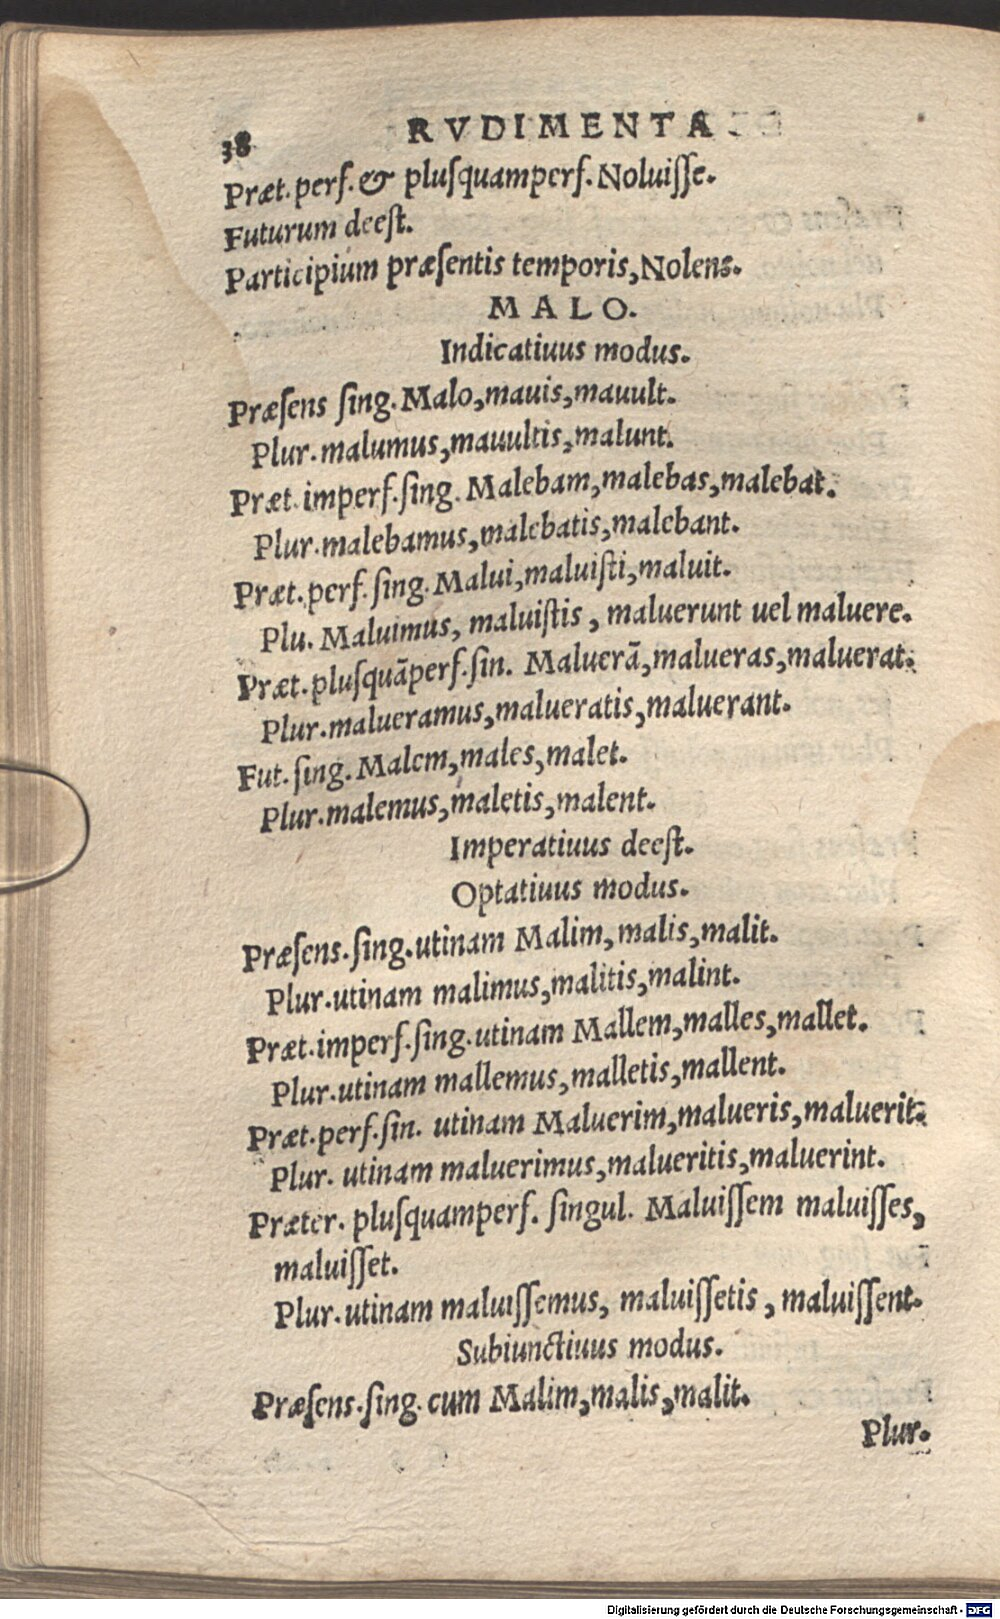 38
RVDIMENTA
Præt. perf. & pluſquamperf. Noluiſſe.
Futurum deeſt.
Participium præſentis temporis, Nolens.
MALO.
Indicatiuus modus.
Præſens ſing. Malo, mauis, mauult.
Plur. malumus, mauultis, malunt.
Præt. imperf. ſing. Malebam, malebas, malebat.
Plur. malebamus, malebatis, malebant.
Præt. perf. ſing. Malui, maluiſti, maluit.
Plu. Maluimus, maluiſtis, maluerunt uel maluere.
Præt. pluſquãperf. ſin. Maluerã, malueras, maluerat.
Plur. malueramus, malueratis, maluerant.
Fut. ſing. Malem, males, malet.
Plur. malemus, maletis, malent.
Imperatiuus deeſt.
Optatiuus modus.
Præſens. ſing. utinam Malim, malis, malit.
Plur. utinam malimus, malitis, malint.
Præt. imperf. ſing. utinam Mallem, malles, mallet.
Plur. utinam mallemus, malletis, mallent.
Præt. perf. ſin. utinam Maluerim, malueris, maluerit.
Plur. utinam maluerimus, malueritis, maluerint.
Præter. pluſquamperf. ſingul. Maluiſſem maluiſſes,
maluiſſet.
Plur. utinam maluiſſemus, maluiſſetis, maluiſſent.
Subiunctiuus modus.
Præſens. ſing. cum Malim, malis, malit.
Plur.
Digitalisierung gefördert durch die Deutsche Forschungsgemeinschaft - DFG